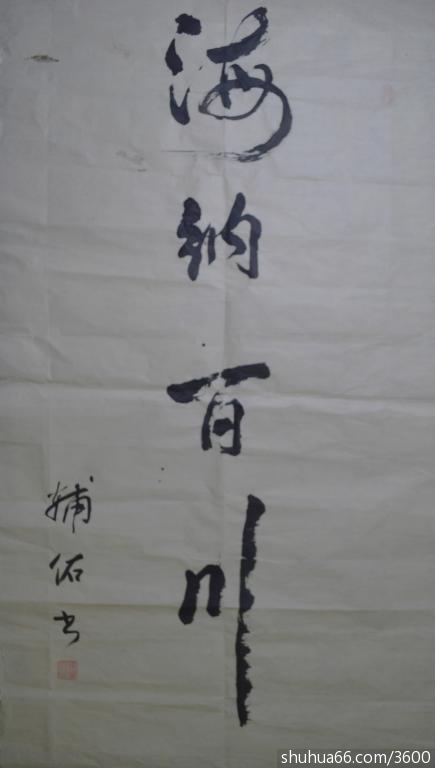 海纳百川
辅佑书
shuhua66.com/3600